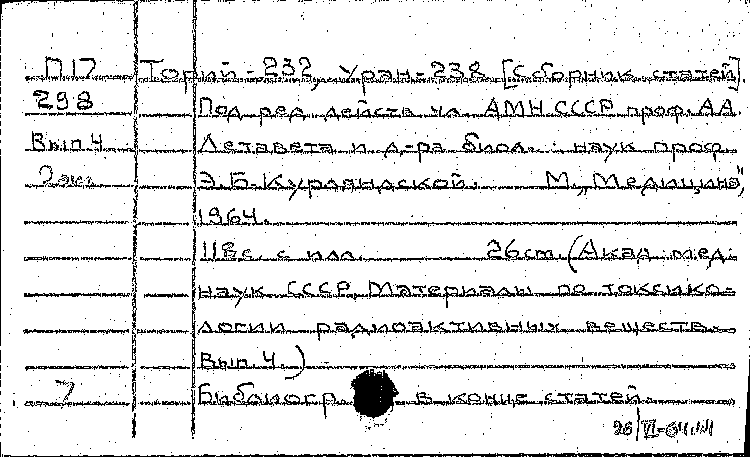 П17 Торий-232, Уран-238 [Сборник статей].
298 Под ред. действ. чл. АМН СССР проф. А.А.
Вып. 4 Летавета и д-ра биол. наук проф.
2 экз. Э.Б. Курляндской. М., "Медицина",
1964.
118 с. с илл. 26 см. (Акад. мед.
наук СССР. Материалы по токсико-
логии радиоактивных веществ.
Вып. 4.)
7 Библиогр. в конце статей.
26/VI-64